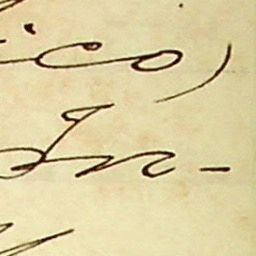 ico)
In-